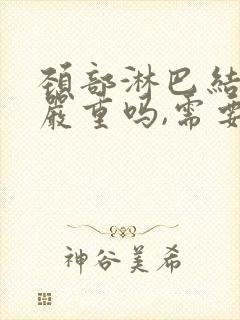 颈部淋巴结
严重吗,需要
神谷美希